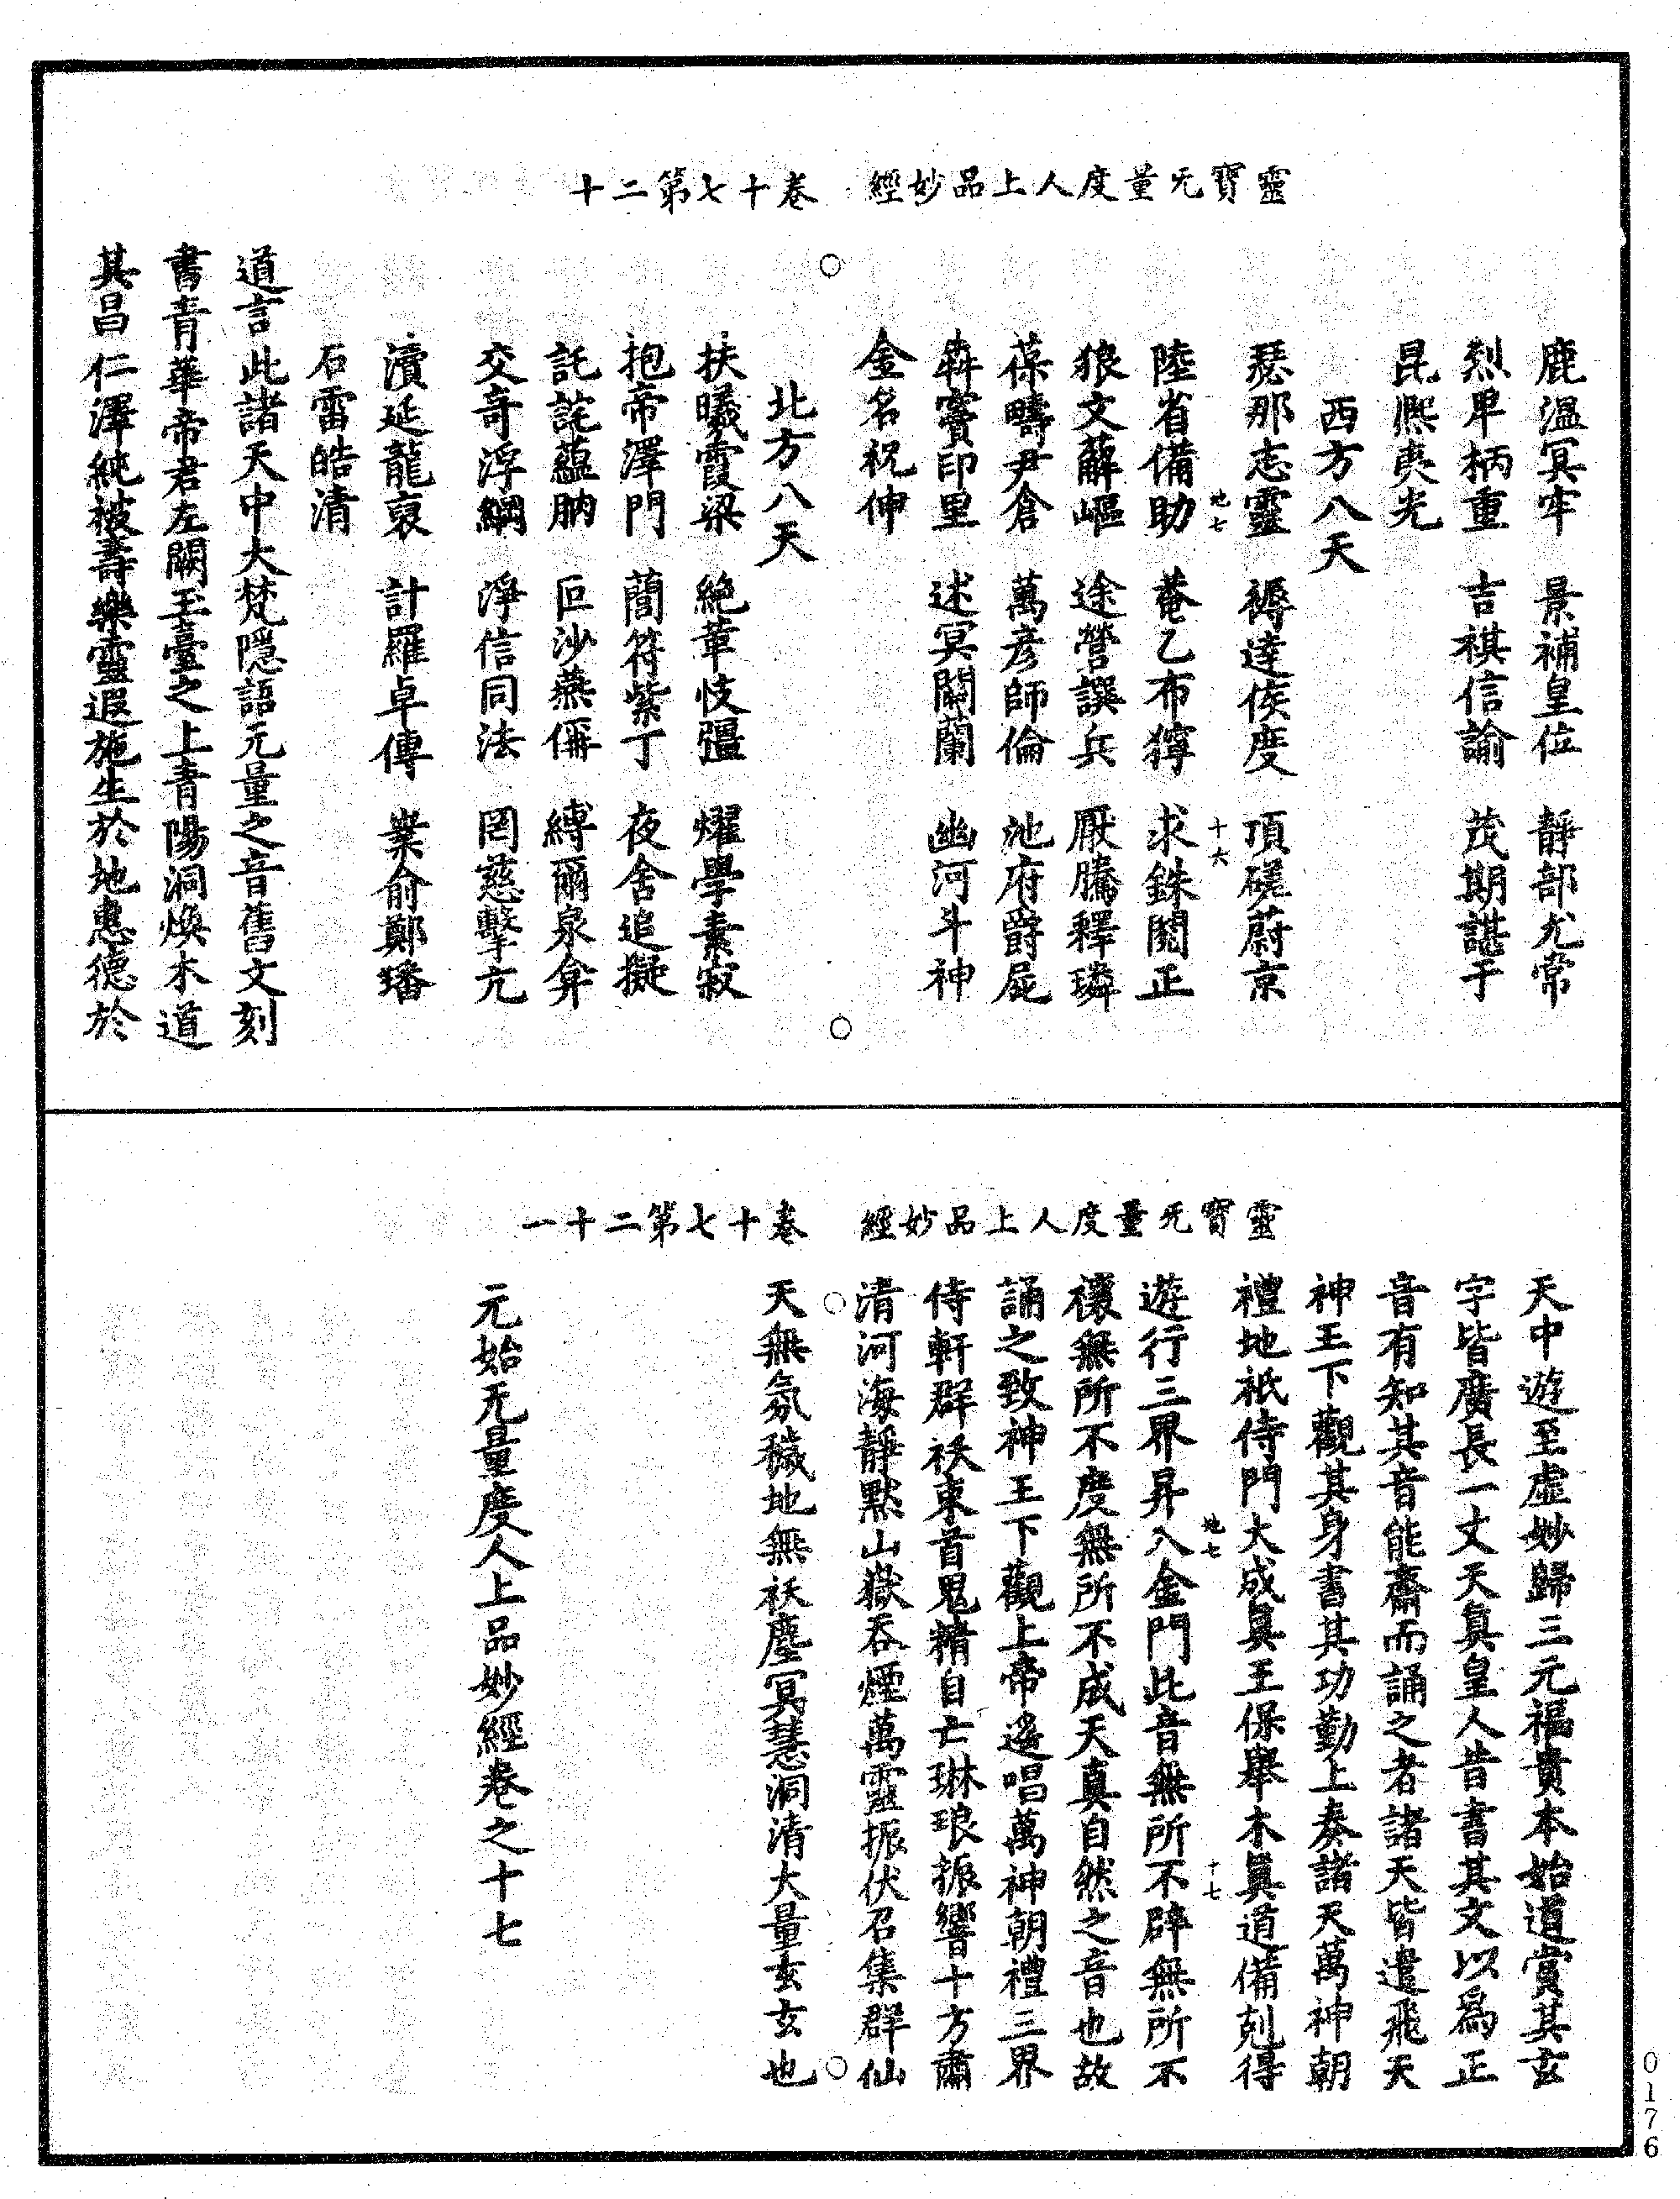 靈寶无量度人上品妙經　卷十七第二十
鹿溫冥牢　景補皇位　靜部尤常
烈卑柄重　吉祺信諭　茂期諶于
昆熙夷光
西方八天
瑟那志靈　褥達侯度　項磋蔚京
地七　十六
陸省備助　菴乙布獰　求銖閱正
狼文薢嶇　途營譔兵　厭騰釋璘
葆疇尹倉　萬彥師倫　池府爵屁
犇賽印里　述冥闢蘭　幽河斗神
金名祝伸
北方八天
扶曦霞梁　絕革忮彊　燿學素寂
抱帝澤門　蕳符紫丁　夜舍追擬
託詫蘊肭　叵沙燕俪　縛爾泉弇
交奇浮綱　淨信同法　罔慈擊亢
瀆延龍裒　計羅卓傳　業俞鄭璠
石雷皓清
道言此諸天中大梵隱語无量之音舊文刻
書青華帝君左闕玉臺之上青陽洞煥木道
其昌仁澤純被壽樂靈遐施生於地惠德於
靈寶无量度人上品妙經　卷十七第二十一
天中遊至虛妙歸三元福貴本始道賞其玄
字皆廣長一丈天真皇人昔書其文以為正
音有知其音能齋而誦之者諸天皆遣飛天
神王下觀其身書其功勤上奏諸天萬神朝
禮地祇侍門大成真王保舉木真道備剋得
地七　十七
遊行三界昇入金門此音無所不辟無所不
禳無所不度無所不成天真自然之音也故
誦之致神王下觀上帝遙唱萬神朝禮三界
侍軒群祅束首鬼精自亡琳琅振響十方肅
清河海靜默山嶽吞煙萬靈振伏召集群仙
天無氛穢地無祅塵冥慧洞清大量玄玄也
元始无量度人上品妙經卷之十七
0176